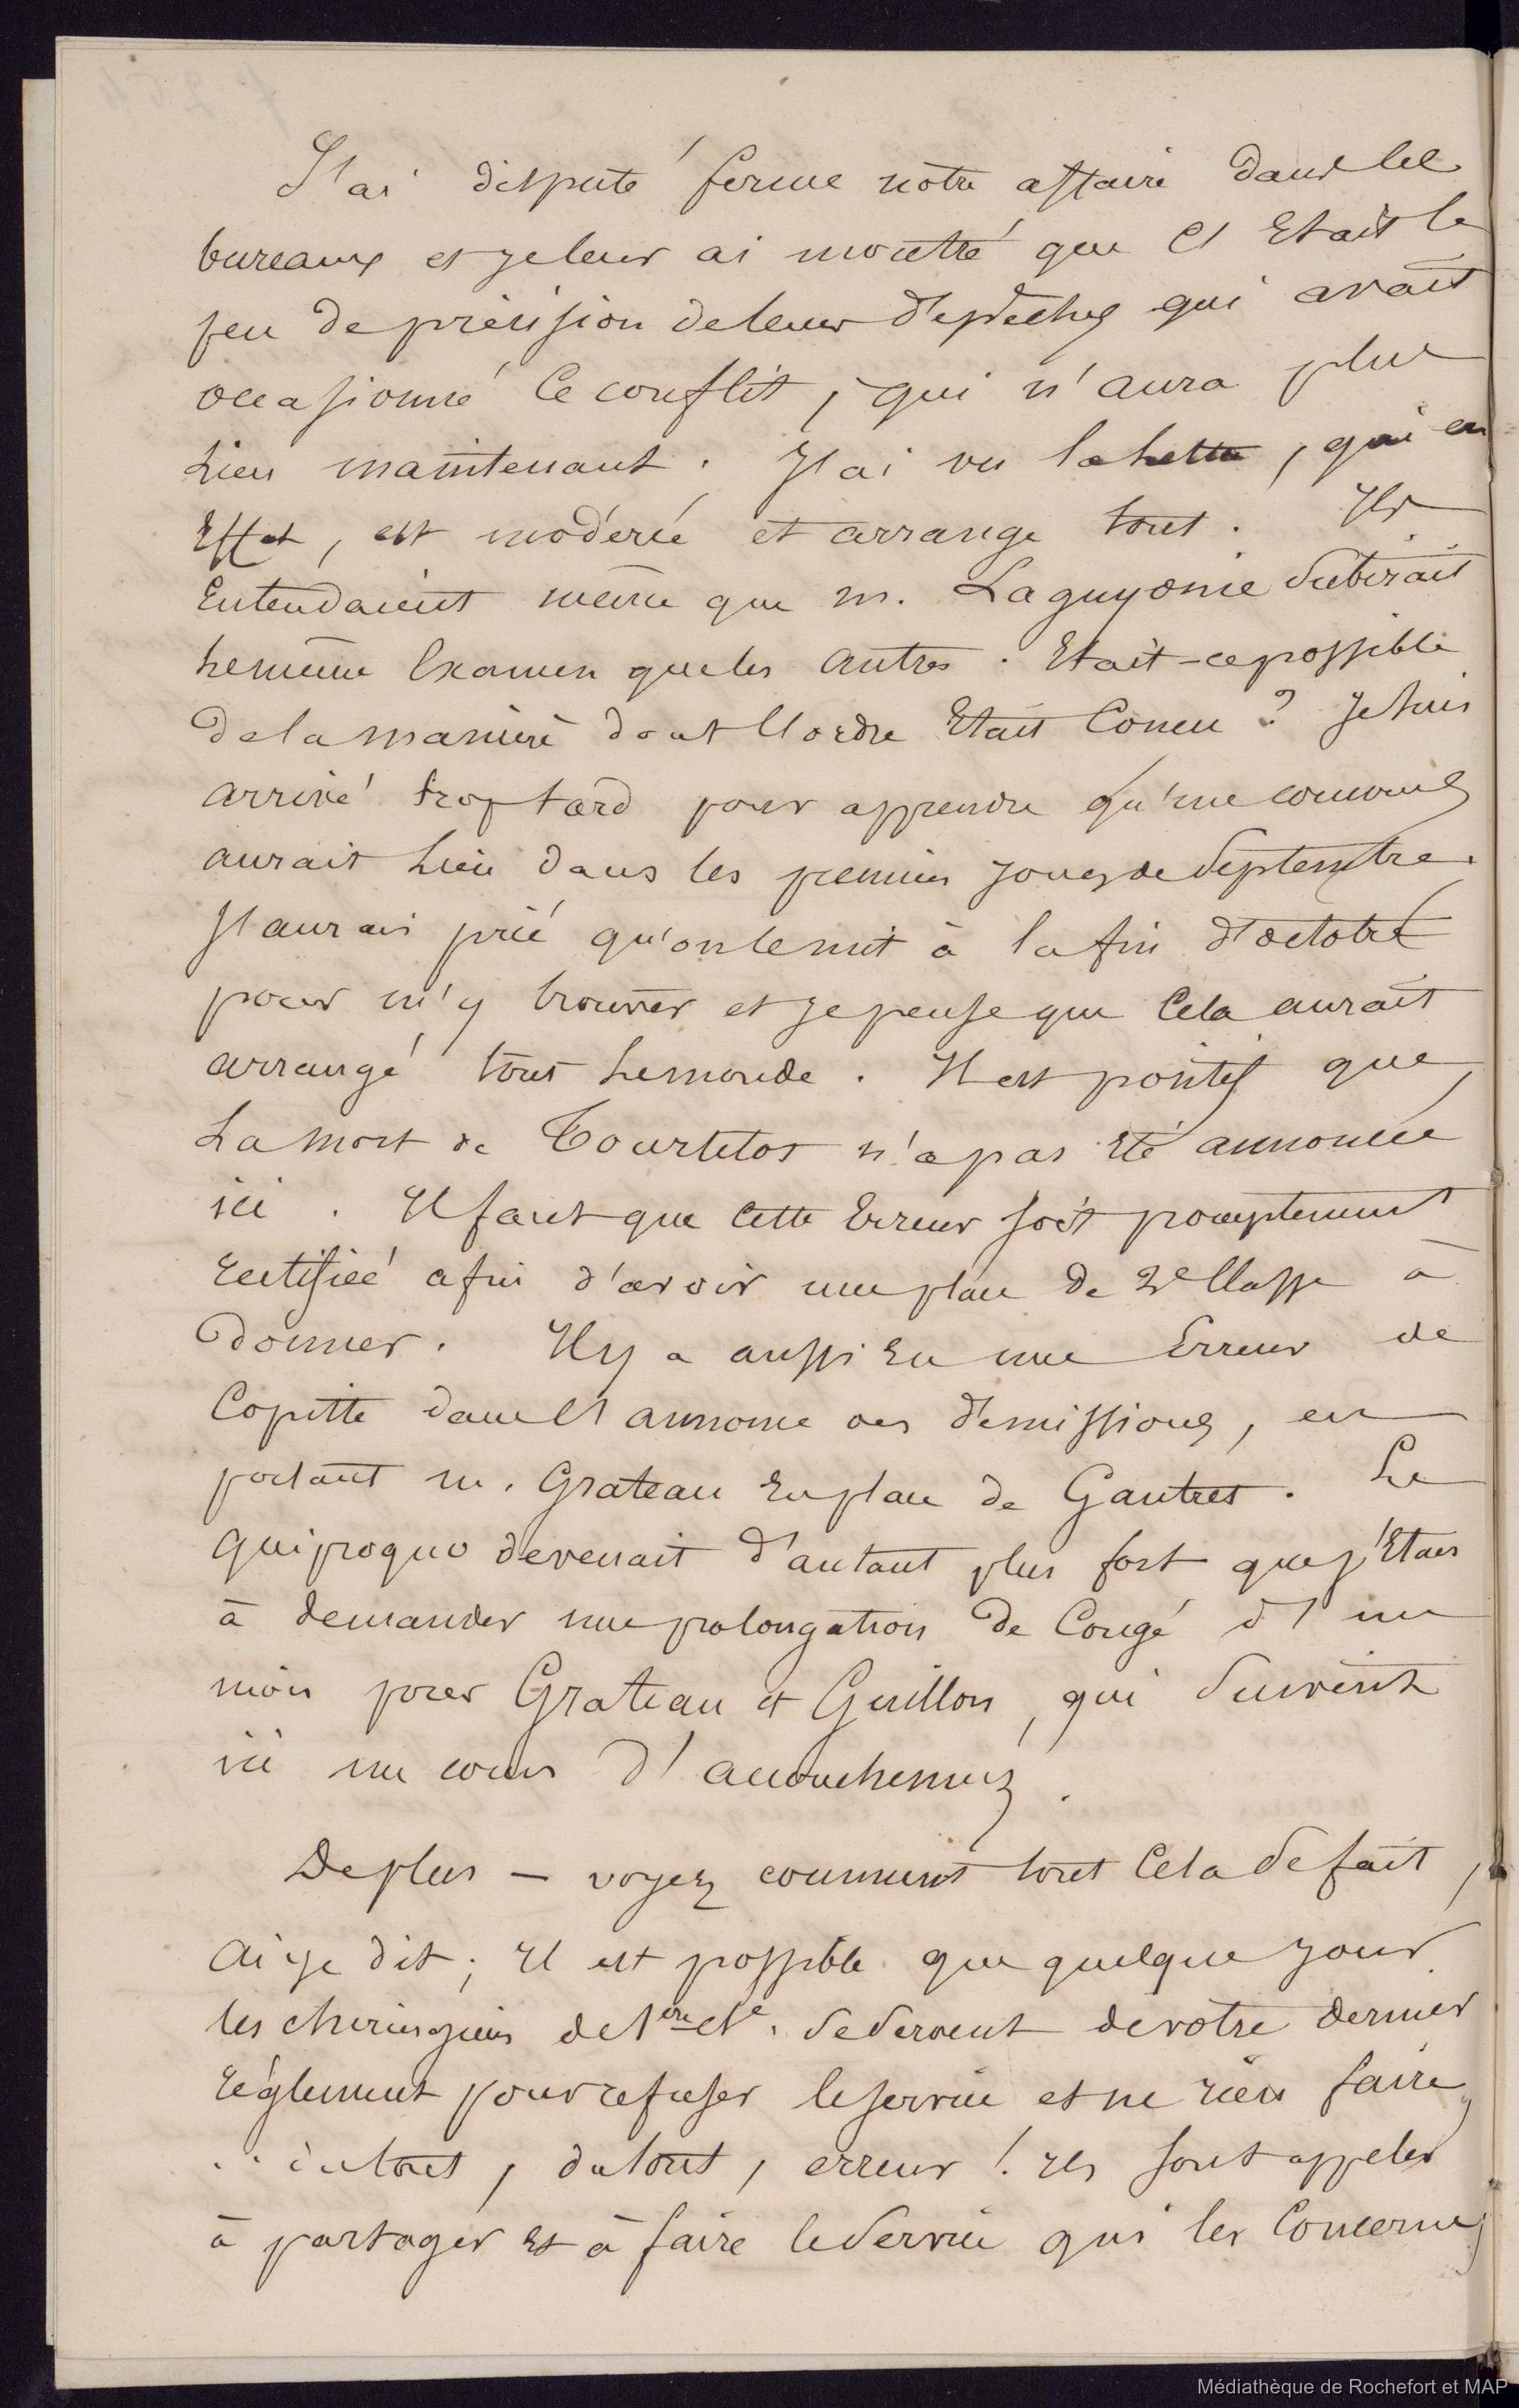 J'ai disputé ferme notre affaire dans les
bureaux et je leur ai montré que c'était le
peu de précision de leurs dépêches qui avait
occasionné ce conflit, qui n'aura plus
lieu maintenant. J'ai vu , qui en
Effet, est modéré et arrange tout. Ils
Entendaient même que m. Laguyonie subirait
le même Examen que les autres. Etait-ce possible
de la manière dont l'ordre Etait Concu ? Je suis
arrivé trop tard pour apprendre qu'une concours
aurait lieu dans les premiers jours de Septembre.
J'aurais prié qu'on le mit à la fin d'octobre
pour m'y trouver et je pense que Cela aurait
arrangé tout le monde. Il est positif que
la mort de Tourtelot n'a pas Eté annoncée
ici. Il faut que cette Erreur soit promptement
rectifiée afin d'avoir une place de 2e Classe à
donner. Il y a aussi Eu une Erreur de
Copiste dans l'annonce des démissions, en
portant m. Grateau En place de Gautret. Le
quiproquo devenait d'autant plus fort que j'Etais
à demander une prolongation de Congé d'un
mois pour Grateau et Guillon, qui suivent
ici un cours d'accouchemens.
De plus – voyez comment tout Cela se fait,
ai-je dit; Il est possible que quelque jour
les chirurgiens de 1ère cle. se servent de votre dernier
réglement pour refuser le service et ne rien faire
.. du tout, du tout, erreur ! Ils sont appelés
à partager Et à faire le service qui les Concerne,
Médiathèque de Rochefort et MAP